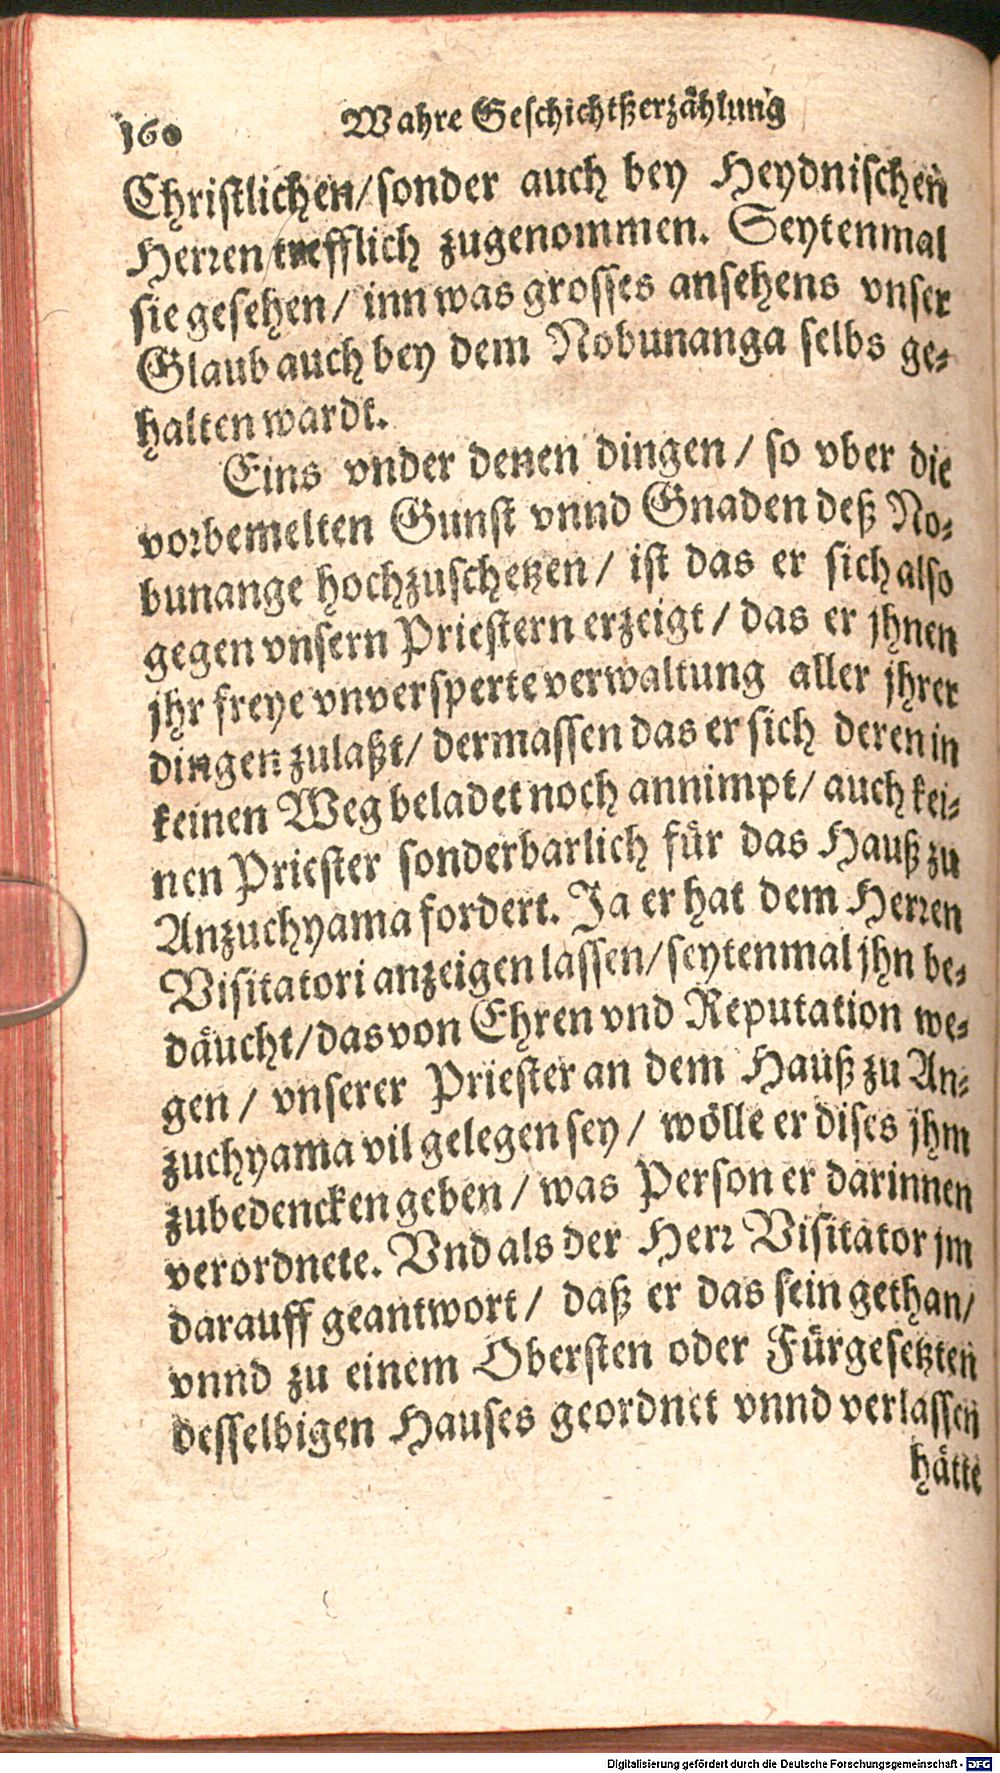 160 Wahre Geschichtßerzählung
Christlichen/ sonder auch bey Heydnischen
Herren trefflich zugenommen. Seytenmal
sie gesehen/ inn was grosses ansehens vnser
Glaub auch bey dem Nobunanga selbs ge-
halten wardt.
Eins vnder denen dingen / so vber die
vorbemelten Gunst vnnd Gnaden deß No-
bunange hochzuschetzen / ist das er sich also
gegen vnsern Priestern erzeigt / das er jhnen
jhr freye vnversperte verwaltung aller jhrer
dingen zulaßt/ dermassen das er sich deren in
keinen Weg beladet noch annimpt/ auch kei-
nen Priester sonderbarlich für das Hauß zu
Anzuchyama fordert. Ja er hat dem Herren
Visitatori anzeigen lassen/ seytenmal jhn be-
däucht/ das von Ehren vnd Reputation we-
gen / vnserer Priester an dem Hauß zu An-
zuchyama vil gelegen sey / wölle er dises jhm
zubedencken geben / was Person er darinnen
verordnete. Vnd als der Herr Visitator jm
darauff geantwort / daß er das sein gethan/
vnnd zu einem Obersten oder Fürgesetzten
desselbigen Hauses geordnet vnnd verlassen
hätte
Digitalisierung gefördert durch die Deutsche Forschungsgemeinschaft - DFG